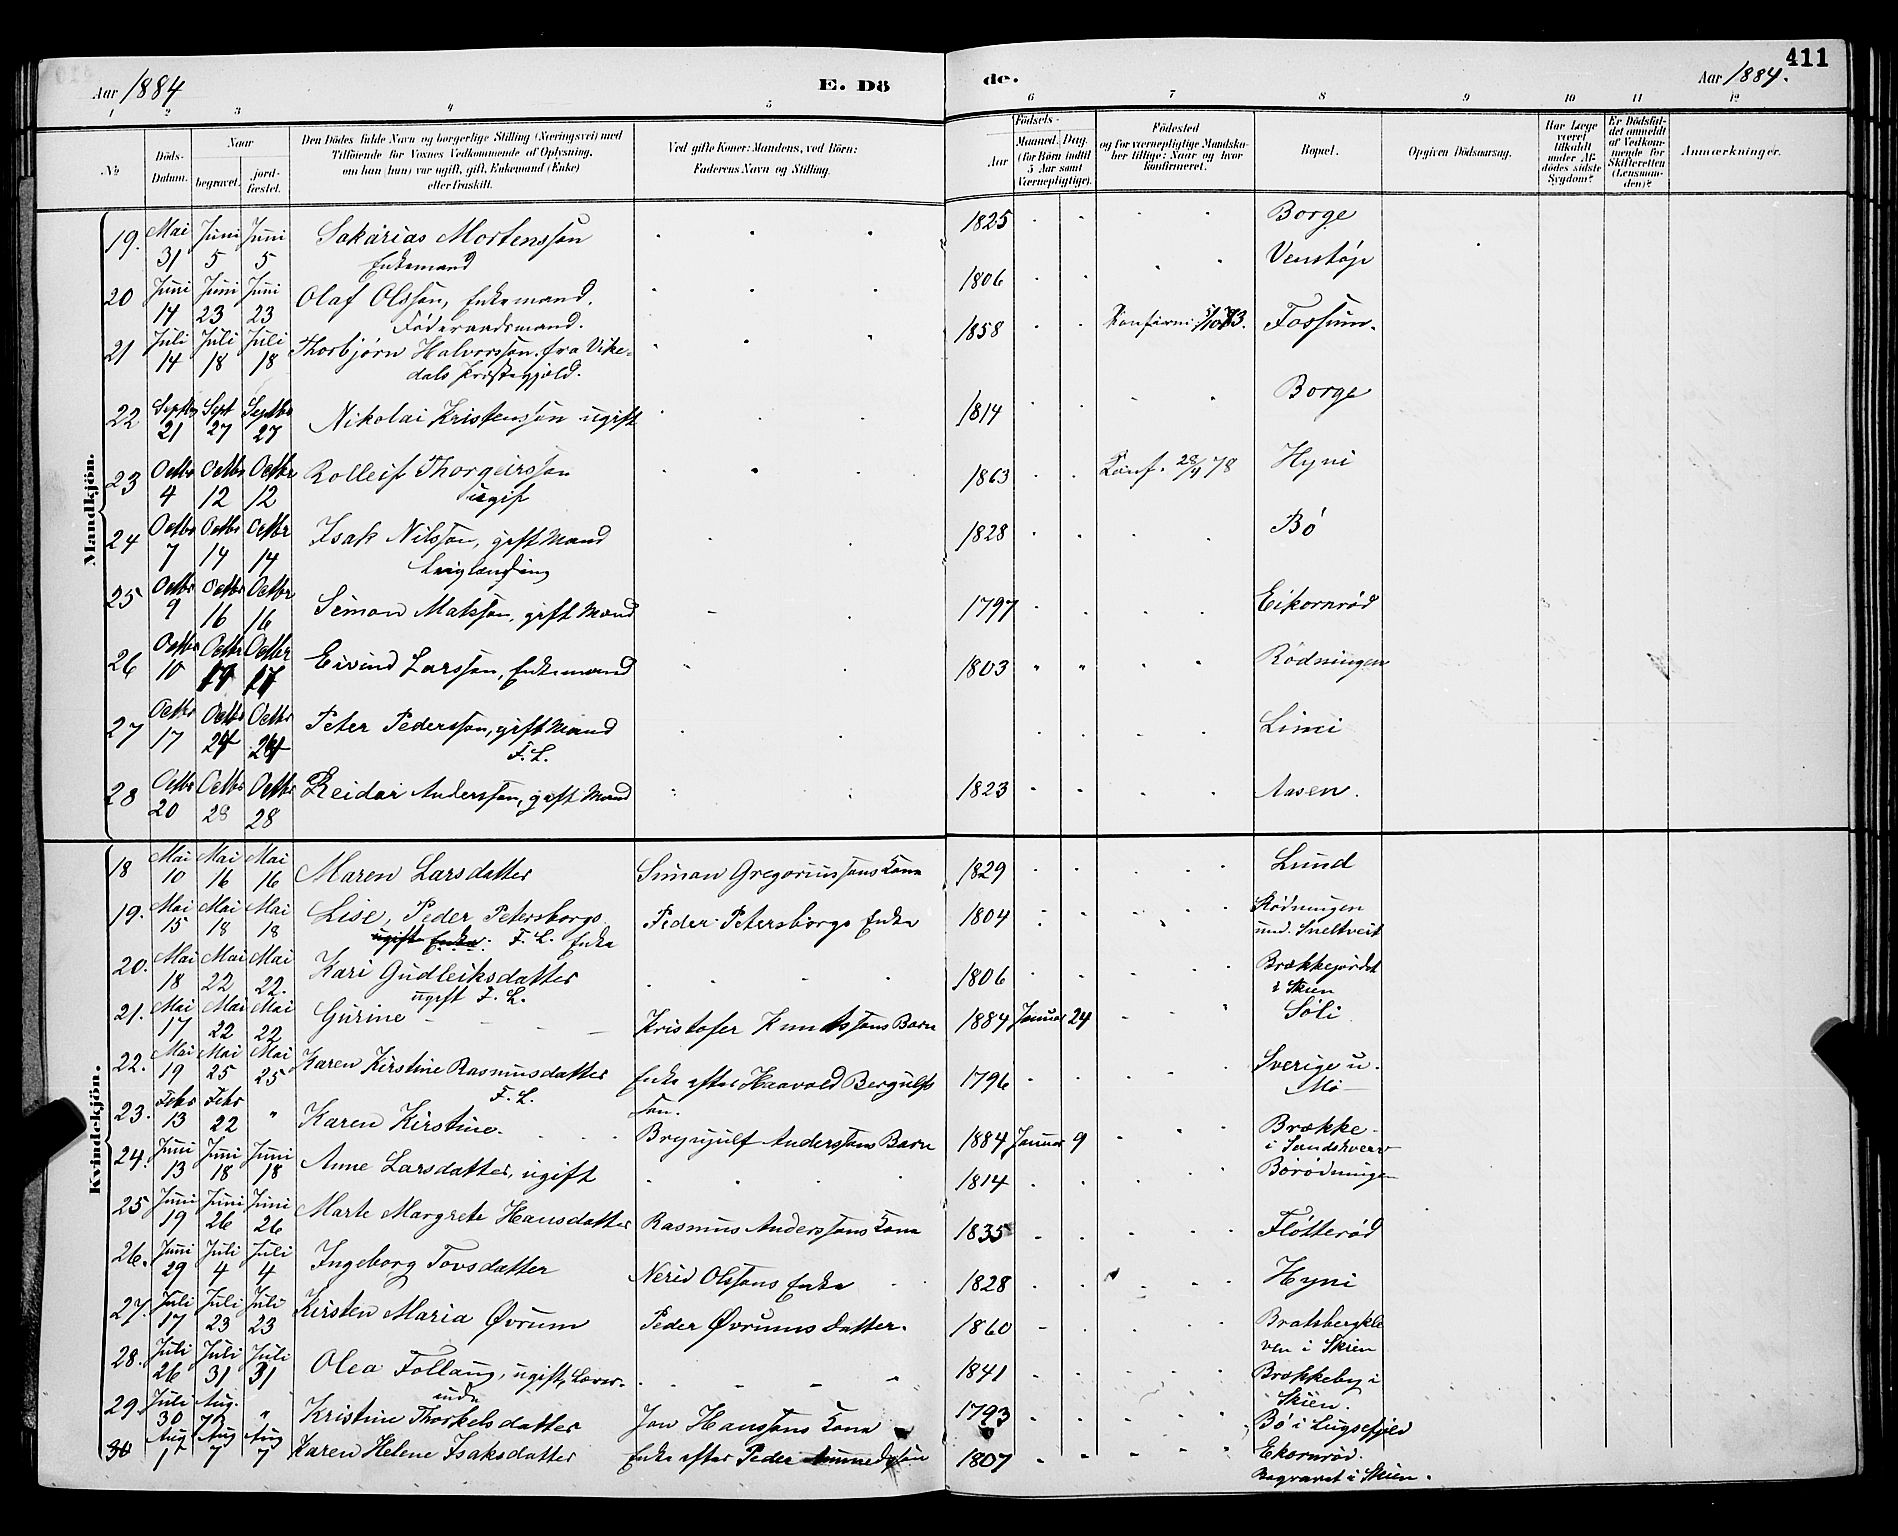 411
Aar 1884 E. Döde. Aar 1884.
1 2 3 4 5 6 7 8 9 10 11 12
№ Döds-Datum. Naar begravet. jordfæstet. Den Dödes fulde Navn og borgerlige Stilling (Næringsvei) med Tilföiende for Voxnes Vedkommende af Oplysning, om han (hun) var ugift, gift, Enkemand (Enke) eller fraskilt. Ved gifte Koner: Mandens, ved Börn: Faderens Navn og Stilling. Födsels- Aar Maaned. Dag. (for Börn indtil 5 Aar samt Værnepligtige). Födested og for værnepligtige Mandskaber tillige: Naar og hvor konfirmeret. Bopæl. Opgiven Dödsaarsag. Har Læge været tilkaldt under Afdödes sidste Sygdom? Er Dödsfaldet anmeldt af Vedkommende for Skifteretten (Lensmanden)? Anmærkninger.
Mandkjön.
19. Mai 31 Juni 5 Juni 5 Sakarias Mortensson Enkemand 1825 Borge
20 Juni 14 Juni 23 Juni 23 Olaf Olsson, Enkemand. Föderaadsmand. 1806 Venstøp
21 Juli 14 Juli 18 Juli 18 Thorbjørn Halvorsson fra Vikedals Præstegjæld. 1858 Konfirm. 5/10 73. Fossum.
22 Septbr 21 Sept 27 Septbr 27 Nikolai Kristensson ugift 1814 Borge
23 Octbr 4 Octbr 12 Octbr 12 Rolleif Thorgeirsson ugift 1863 Konf. 28/4 78 Hyni
24 Octbr 7 Octbr 14 Octbr 14 Isak Nilsson, gift Mand 1828 Bö
25 Octbr 9 Octbr 16 Octbr 16 Simon Matsson, gift Mand 1797 Eikornrød
26 Octbr 10 Octbr 17 Octbr 17 Eivind Larsson, Enkemand 1803 Rødningen
27 Octbr 17 Octbr 24 Octbr 24 Peter Pedersson, gift Mand F. L. Limi
28 Octbr 20 Octbr 28 Octbr 28 Reidar Andersson, gift Mand 1823 Aasen.
Kvindekjön.
18 Mai 10 Mai 16 Mai 16 Maren Larsdatter Simon Gregoriussons Kone 1829 Lund
19. Mai 15 Mai 18 Mai 18 Lise, Peder Petersborgs ugift Enke. F. L. Enke Peder Petersborgs Enke 1804 Rødningen und. Sneltveit
20. Mai 18 Mai 22 Mai 22. Kari Gudleiksdatter ugift F. L. 1806 Brækkejordet i Skien
21. Mai 17 Mai 22 Mai 22 Gurine Kristofer Knutssons Barn 1884 Januar 24 Søli
22. Mai 19 Mai 25 Mai 25 Karen Kirstine Rasmusdatter F. L. Enke efter Haavold Bergulfsson. 1796 Sverige u. Mo
23. Febr 13 Febr 22 " Karen Kirstine. Brynjulf Anderssons Barn 1884 Januar 9 Brække i Sandshverv
24. Juni 13 Juni 18 Juni 18 Anne Larsdatter, ugift 1814 Børødningen
25 Juni 19 Juni 26 Juni 26 Marte Margrete Hansdatter Rasmus Anderssons Kone 1835 Fløtterød
26. Juni 29 Juli 4 Juli 4 Ingeborg Tovsdatter Nerid Olssons Enke 1828 Hyni
27. Juli 17 Juli 23 Juli 23 Kirsten Maria Øvrum Peder Øvrums Datter. 1860 Bratsbergkleven i Skien
28. Juli 26 Juli 31 Juli 31 Olea Follaug, ugift, 1841 Brækkeby i Skien.
29. Juli 30 Aug. " Kristine Thorkelsdatter Jon Hanssons Kone 1793 Bö i Lugsefjeld
30 Aug 1 Aug 7 Aug 7 Karen Helene Isaksdatter Enke efter Peder 1807 Ekornrød. Begravet i Skien.